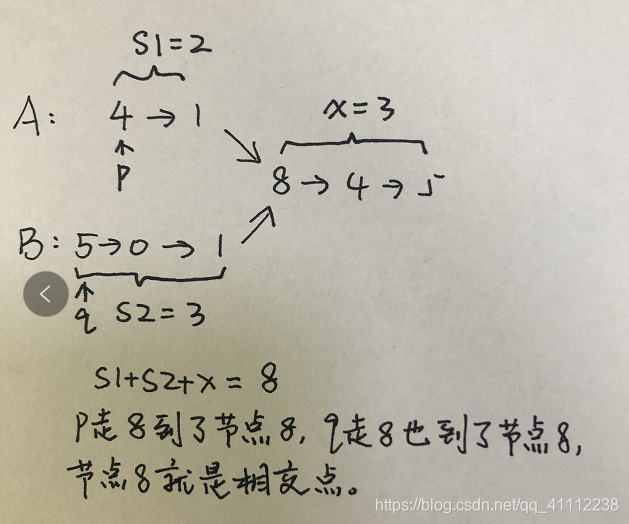 S1=2
A: 4→1
x=3
p
8→4→5
B: 5→0→1
q S2=3
S1+S2+x=8
P走8到了节点8,q走8也到了节点8,
节点8就是相交点。
https://blog.csdn.net/qq_41112238